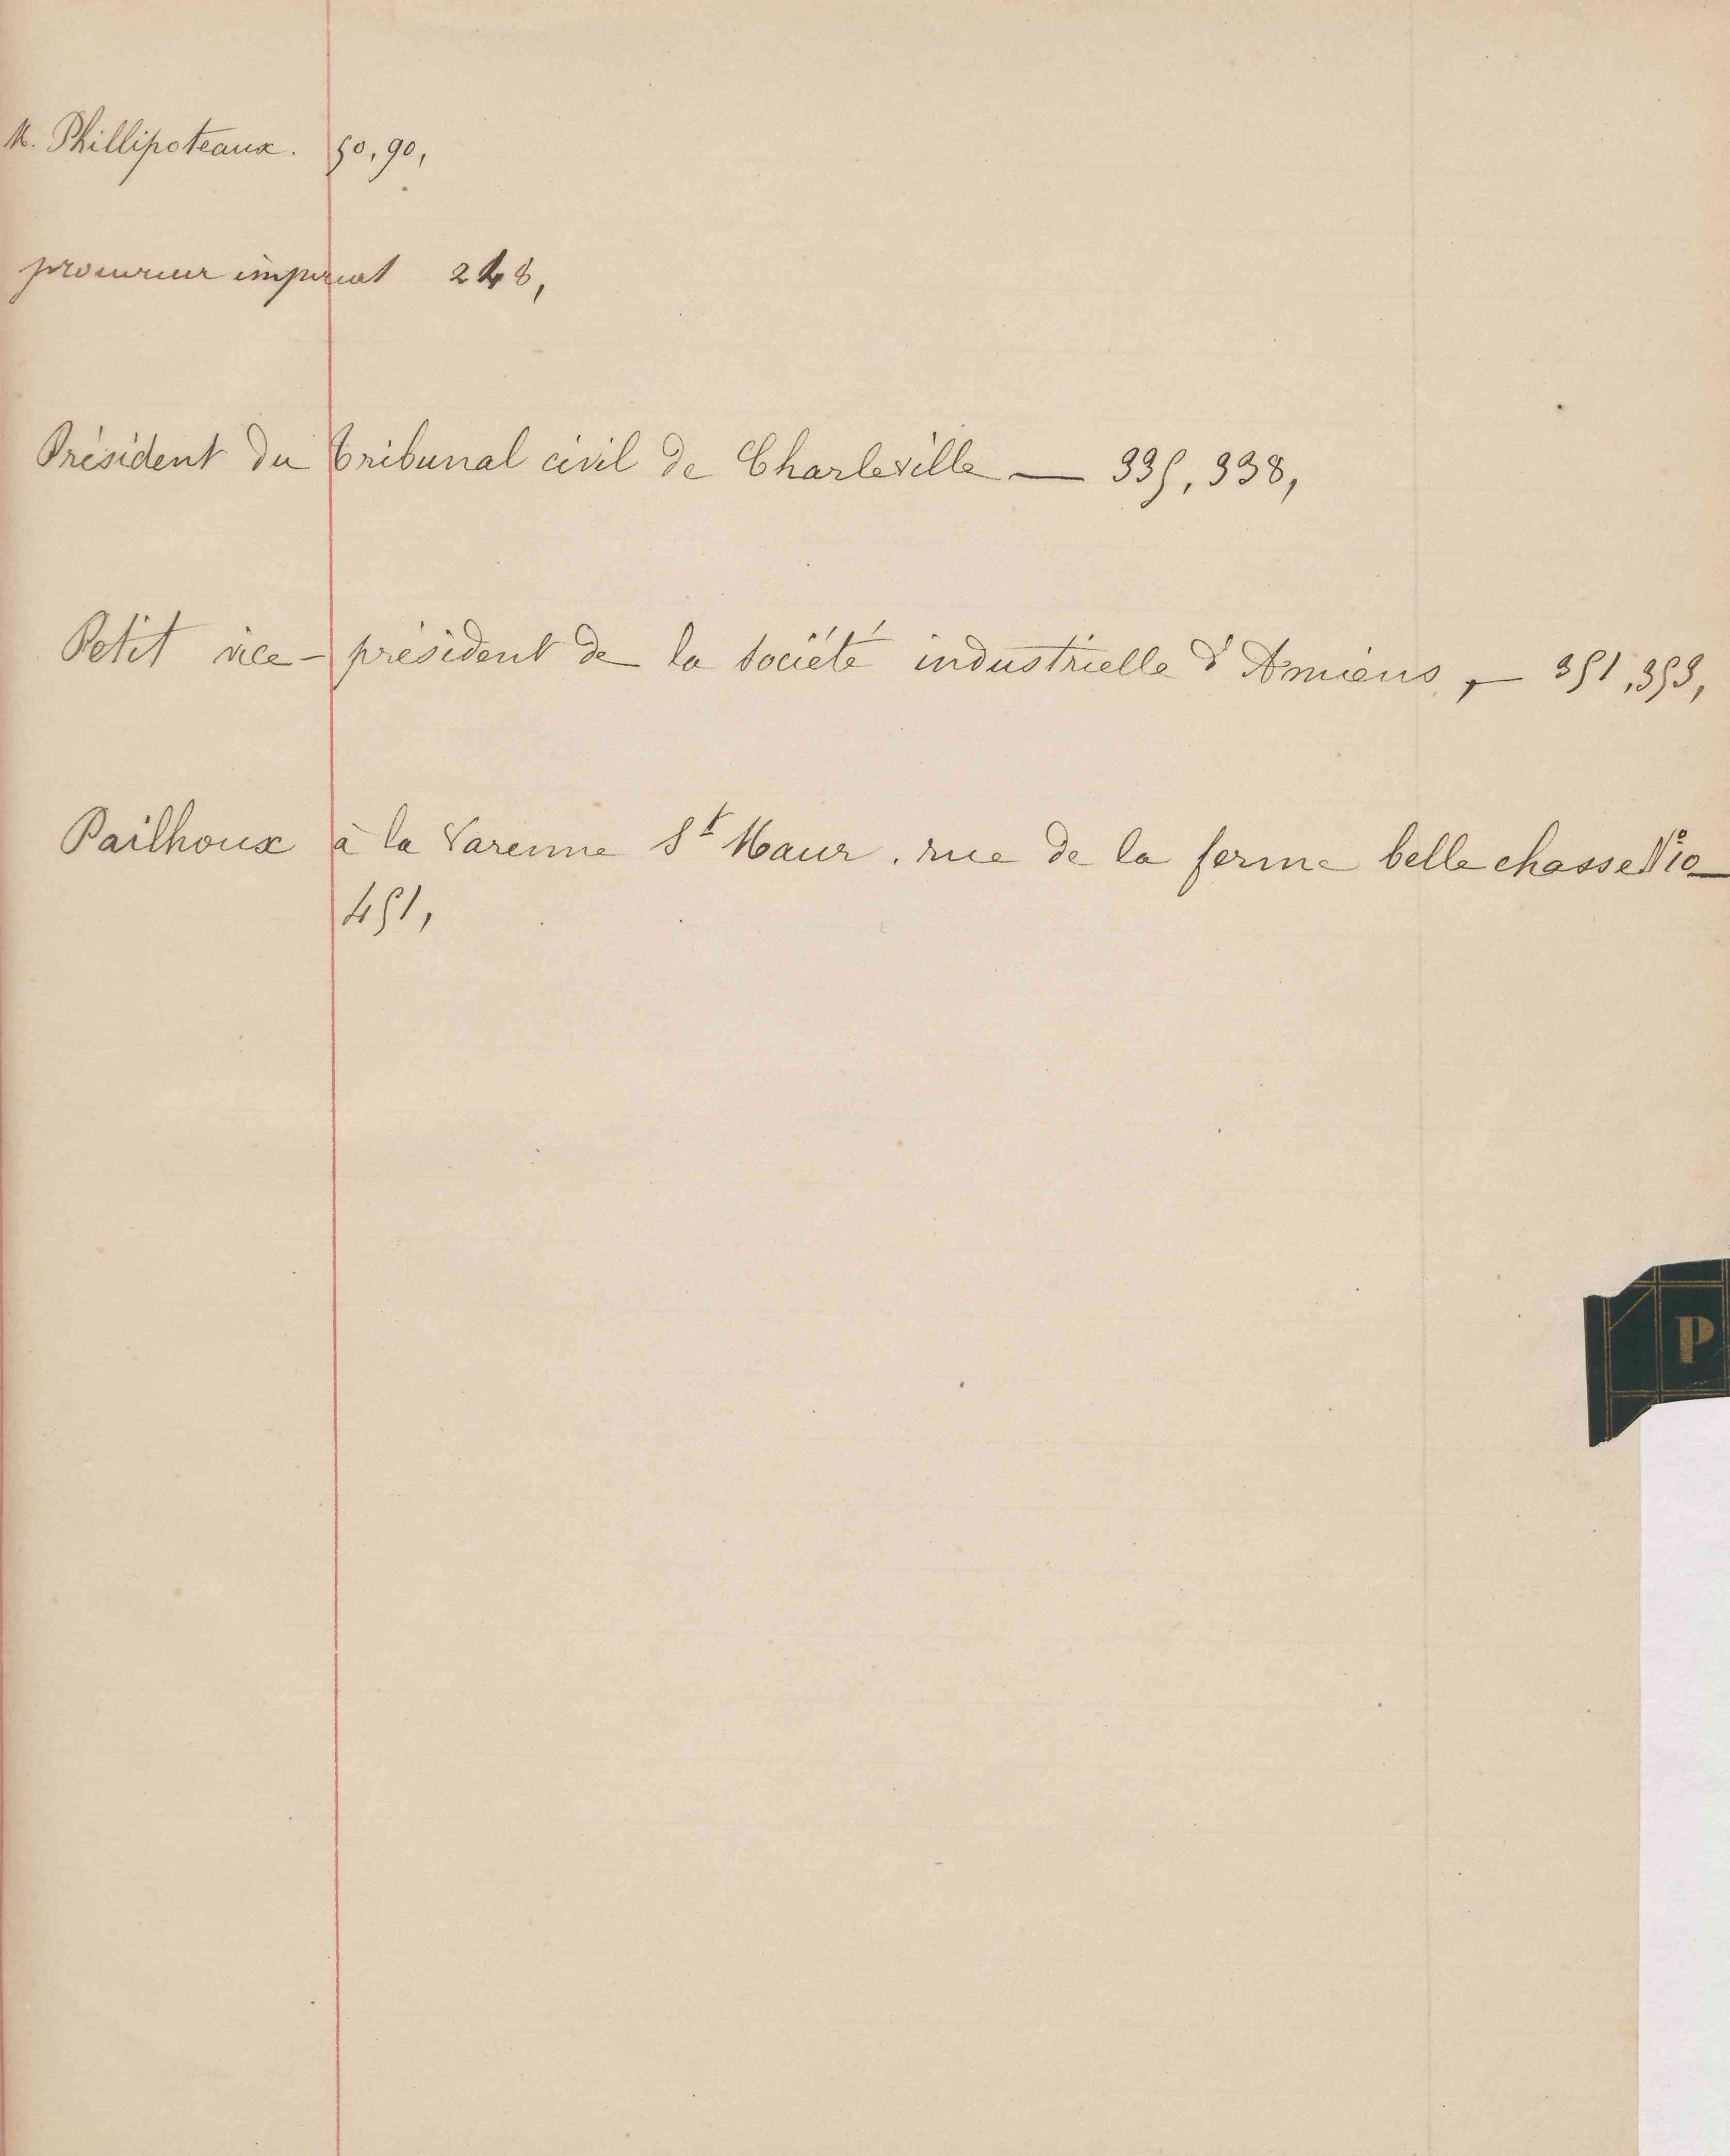 M. Phillipoteaux. 50, 90,
procureur impérial 248,
Président du tribunal civil de Charleville — 335, 338,
Petit vice-président de la société industrielle d'Amiens, — 351, 353,
Pailhoux à la Varenne St Maur, rue de la ferme belle chasse N° 10 —
451,
P